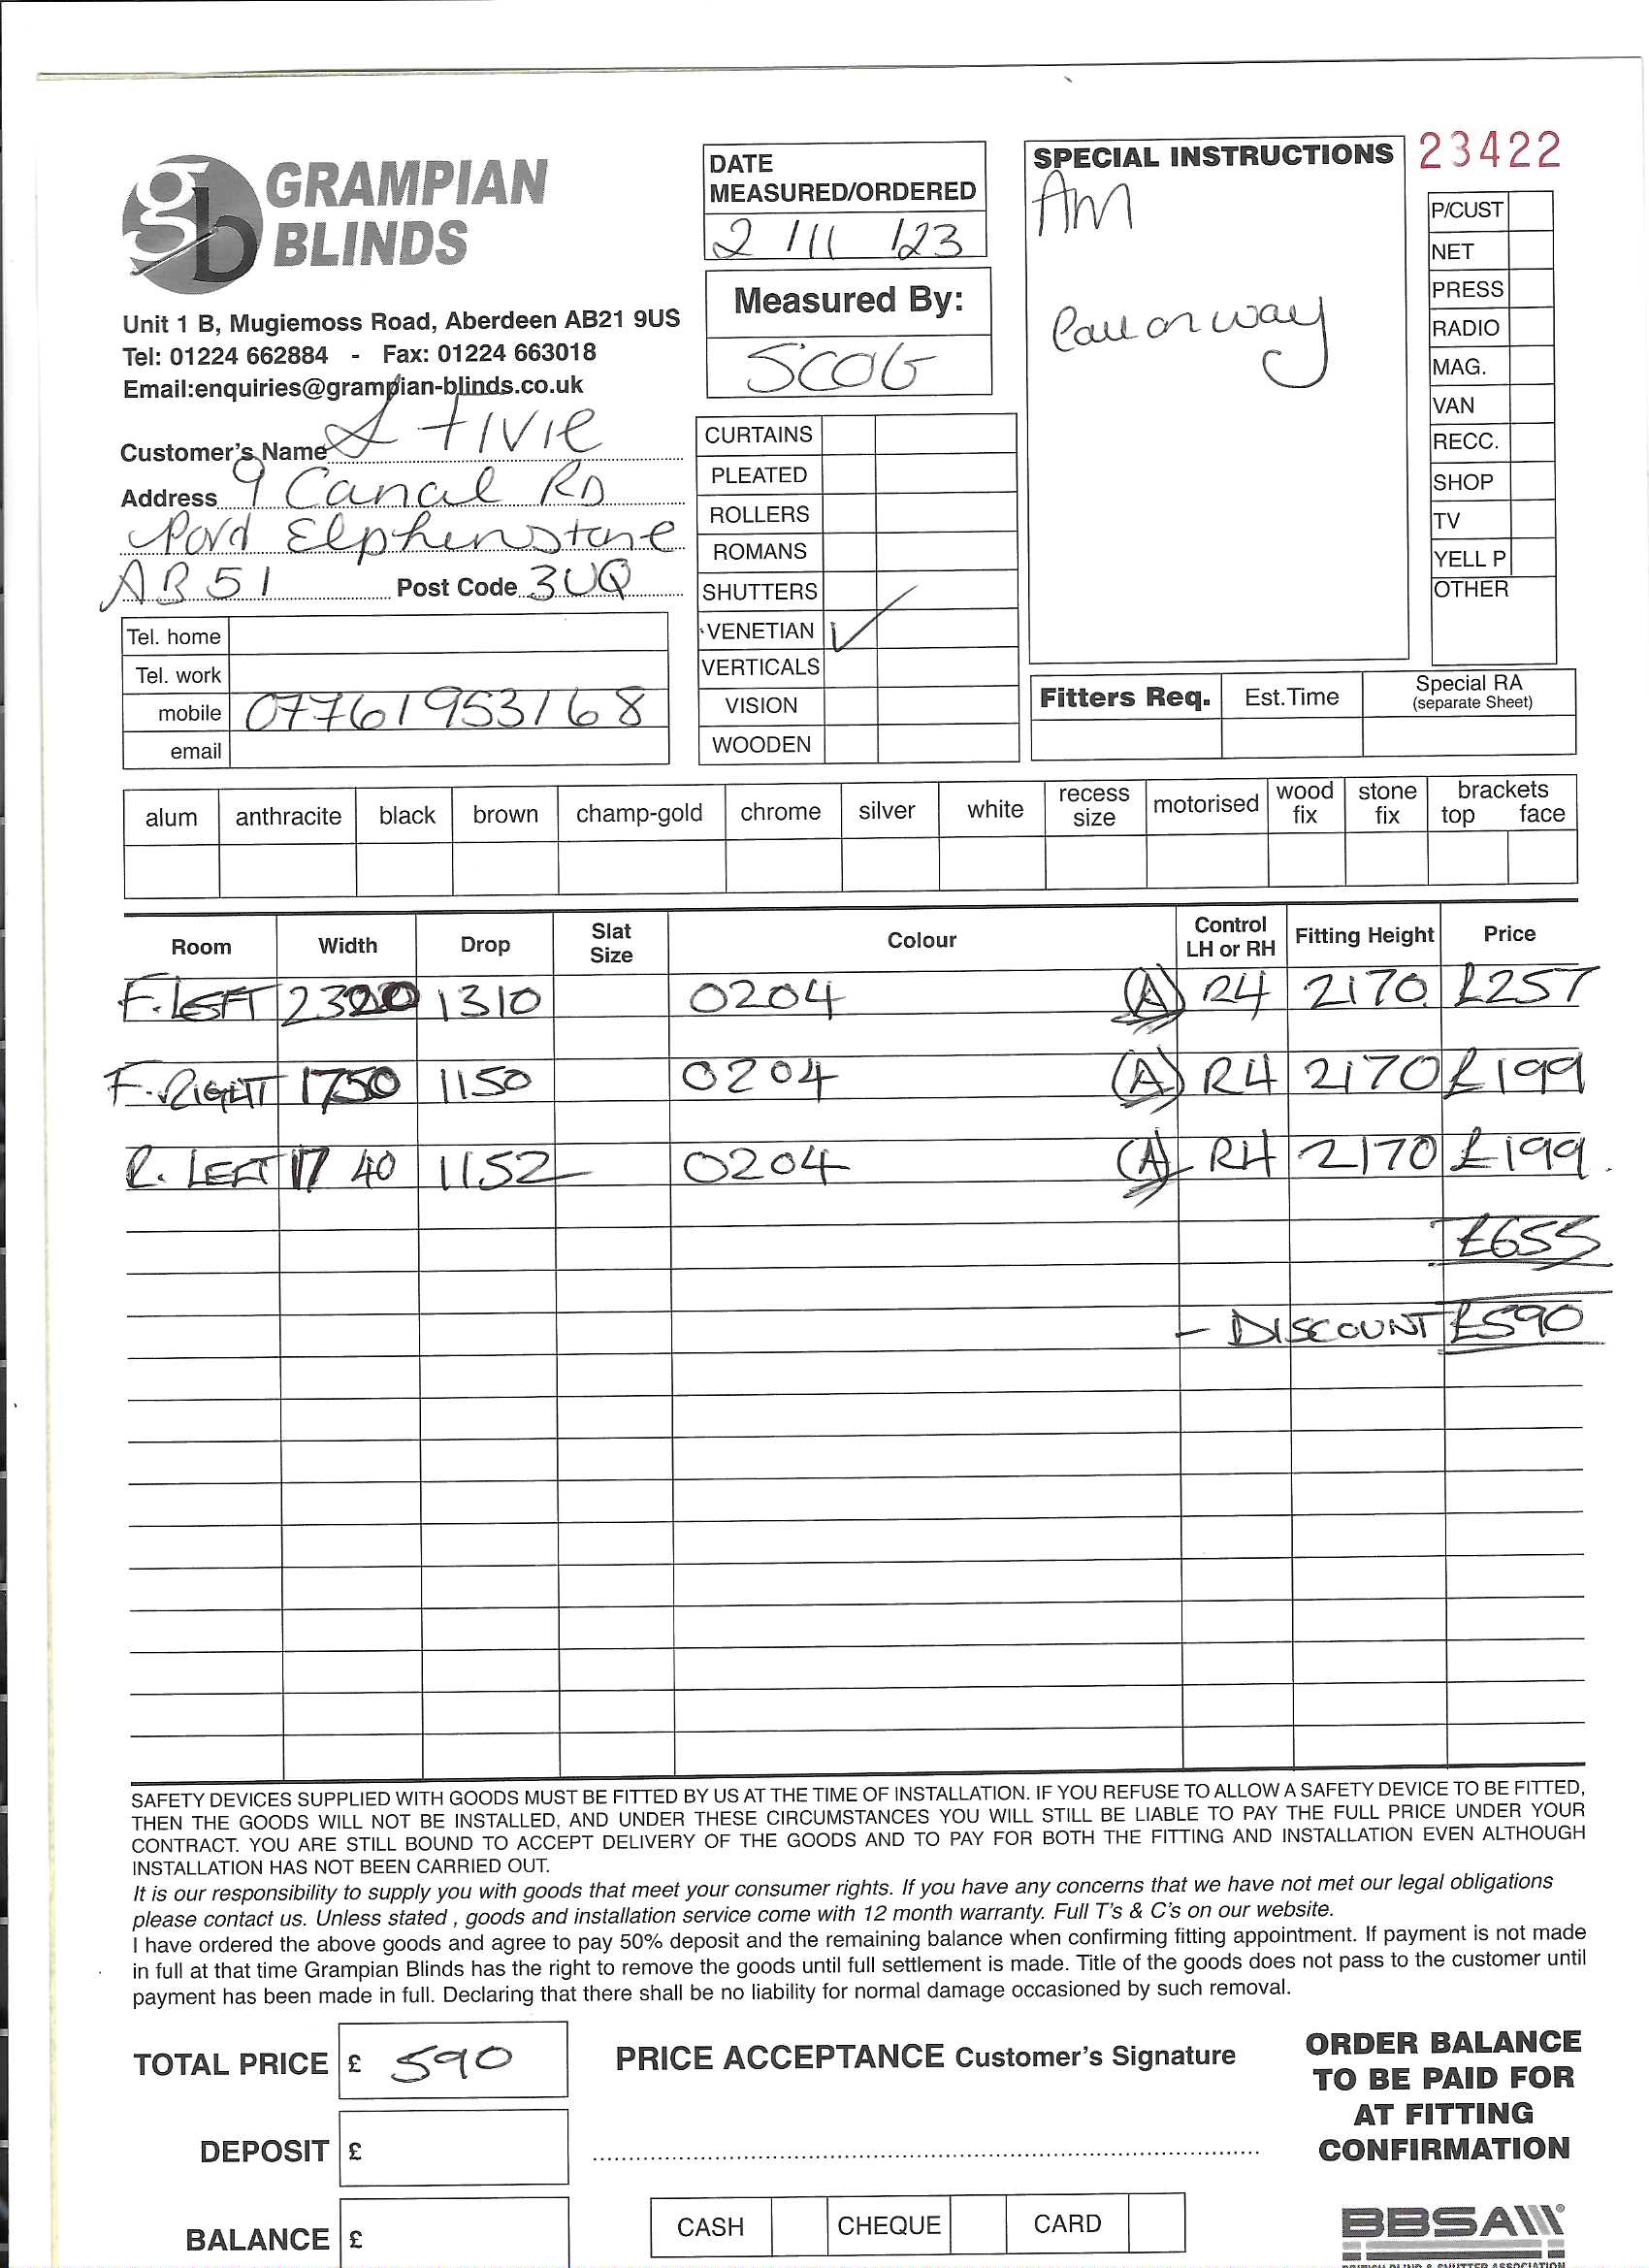 GRAMPIAN
BLINDS
Unit 1 B, Mugiemoss Road, Aberdeen AB21 9US
Tel: 01224 662884 - Fax: 01224 663018
Email:enquiries@grampian-blinds.co.uk
DATE
MEASURED/ORDERED
2 / 11 / 23
Measured By:
SPECIAL INSTRUCTIONS
AM
Call on way
23422
P/CUST
NET
PRESS
RADIO
MAG.
VAN
RECC.
SHOP
TV
YELL P
OTHER
Customer's Name Ivie
Address 9 Canal RD
Port Elphinstone
AB51 Post Code 3UQ
Tel. home
Tel. work
mobile 07761953168
email
CURTAINS
PLEATED
ROLLERS
ROMANS
SHUTTERS
VENETIAN ✓
VERTICALS
VISION
WOODEN
Fitters Req. Est.Time Special RA
(separate Sheet)
alum anthracite black brown champ-gold chrome silver white recess size motorised wood fix stone fix brackets top face
Room Width Drop Slat Size Colour Control LH or RH Fitting Height Price
F. LEFT 2320 1310 0204 (A) RH 2170 £257
F. RIGHT 1750 1150 0204 (A) RH 2170 £199
R. LEFT 1740 1152 0204 (A) RH 2170 £199
£655
- DISCOUNT £590
SAFETY DEVICES SUPPLIED WITH GOODS MUST BE FITTED BY US AT THE TIME OF INSTALLATION. IF YOU REFUSE TO ALLOW A SAFETY DEVICE TO BE FITTED,
THEN THE GOODS WILL NOT BE INSTALLED, AND UNDER THESE CIRCUMSTANCES YOU WILL STILL BE LIABLE TO PAY THE FULL PRICE UNDER YOUR
CONTRACT. YOU ARE STILL BOUND TO ACCEPT DELIVERY OF THE GOODS AND TO PAY FOR BOTH THE FITTING AND INSTALLATION EVEN ALTHOUGH
INSTALLATION HAS NOT BEEN CARRIED OUT.
It is our responsibility to supply you with goods that meet your consumer rights. If you have any concerns that we have not met our legal obligations
please contact us. Unless stated , goods and installation service come with 12 month warranty. Full T's & C's on our website.
I have ordered the above goods and agree to pay 50% deposit and the remaining balance when confirming fitting appointment. If payment is not made
in full at that time Grampian Blinds has the right to remove the goods until full settlement is made. Title of the goods does not pass to the customer until
payment has been made in full. Declaring that there shall be no liability for normal damage occasioned by such removal.
TOTAL PRICE £ 590
DEPOSIT £
BALANCE £
PRICE ACCEPTANCE Customer's Signature
CASH CHEQUE CARD
ORDER BALANCE
TO BE PAID FOR
AT FITTING
CONFIRMATION
BBSA